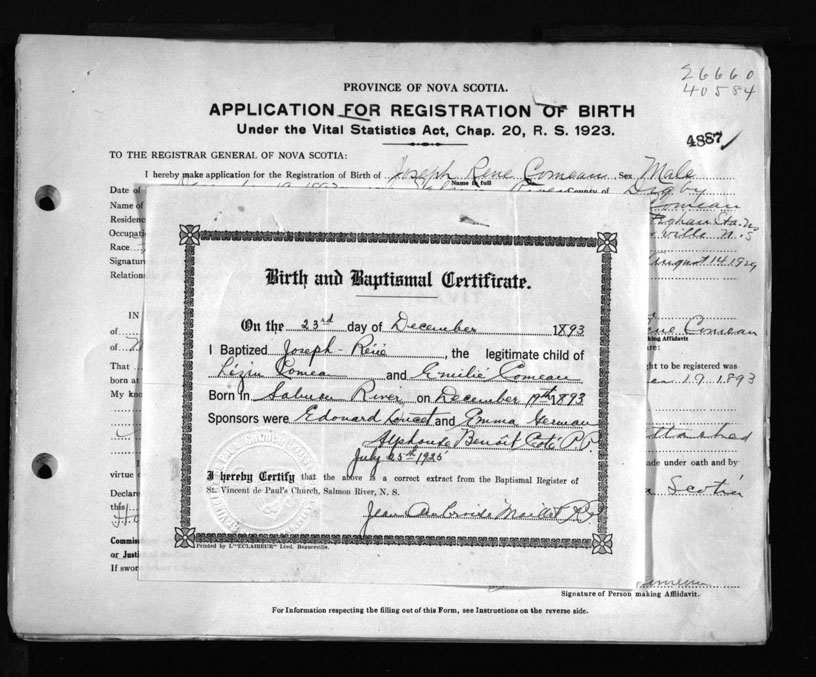 26660
40584
4887
PROVINCE OF NOVA SCOTIA.
APPLICATION FOR REGISTRATION OF BIRTH
Under the Vital Statistics Act, Chap. 20, R. S. 1923.
TO THE REGISTRAR GENERAL OF NOVA SCOTIA:
I hereby make application for the Registration of Birth of Joseph Rene Comeau Sex Male
Name in full
Date of County of Digby
Name of Comeau
Residence
Occupati ville N.S
Race
Signatur August 14 1929
Relation
IN
of Comeau
making Affidavit
of
That ght to be registered was
born at 19 1893
My kno
attached
ade under oath and by
virtue Scotia
Declare
this
Commis
or Justi
If swor
Signature of Person making Affidavit.
For Information respecting the filling out of this Form, see Instructions on the reverse side.
Birth and Baptismal Certificate.
On the 23rd day of December 1893
I Baptized Joseph-Réné, the legitimate child of
Comea and Emilie Comeau
Born in Salmon River on December 19th 1893
Sponsors were Edouard Doucet and Emma German
Alphonse Benoit Coté P.P.
July 25th 1925
I hereby Certify that the above is a correct extract from the Baptismal Register of
St. Vincent de Paul's Church, Salmon River, N. S.
Jean Ambroise Maillet
Printed by L'"ECLAIREUR" Lted. Beauceville.